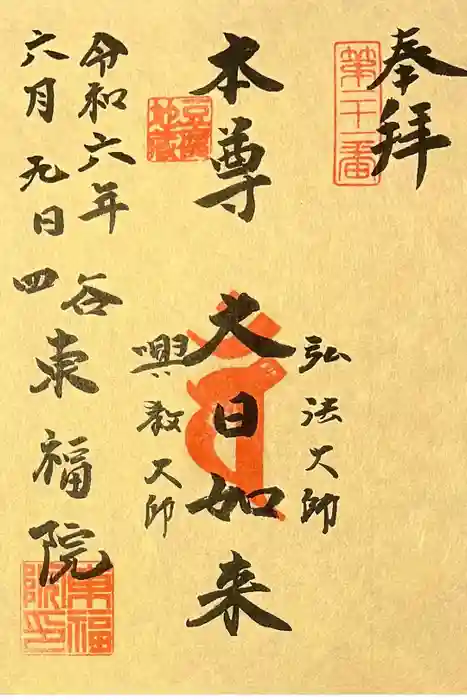 奉拝
第二十一番
本尊 大日如来
豆腐地蔵
弘法大師
興教大師
令和六年
六月九日
四谷
東福院
東福院印